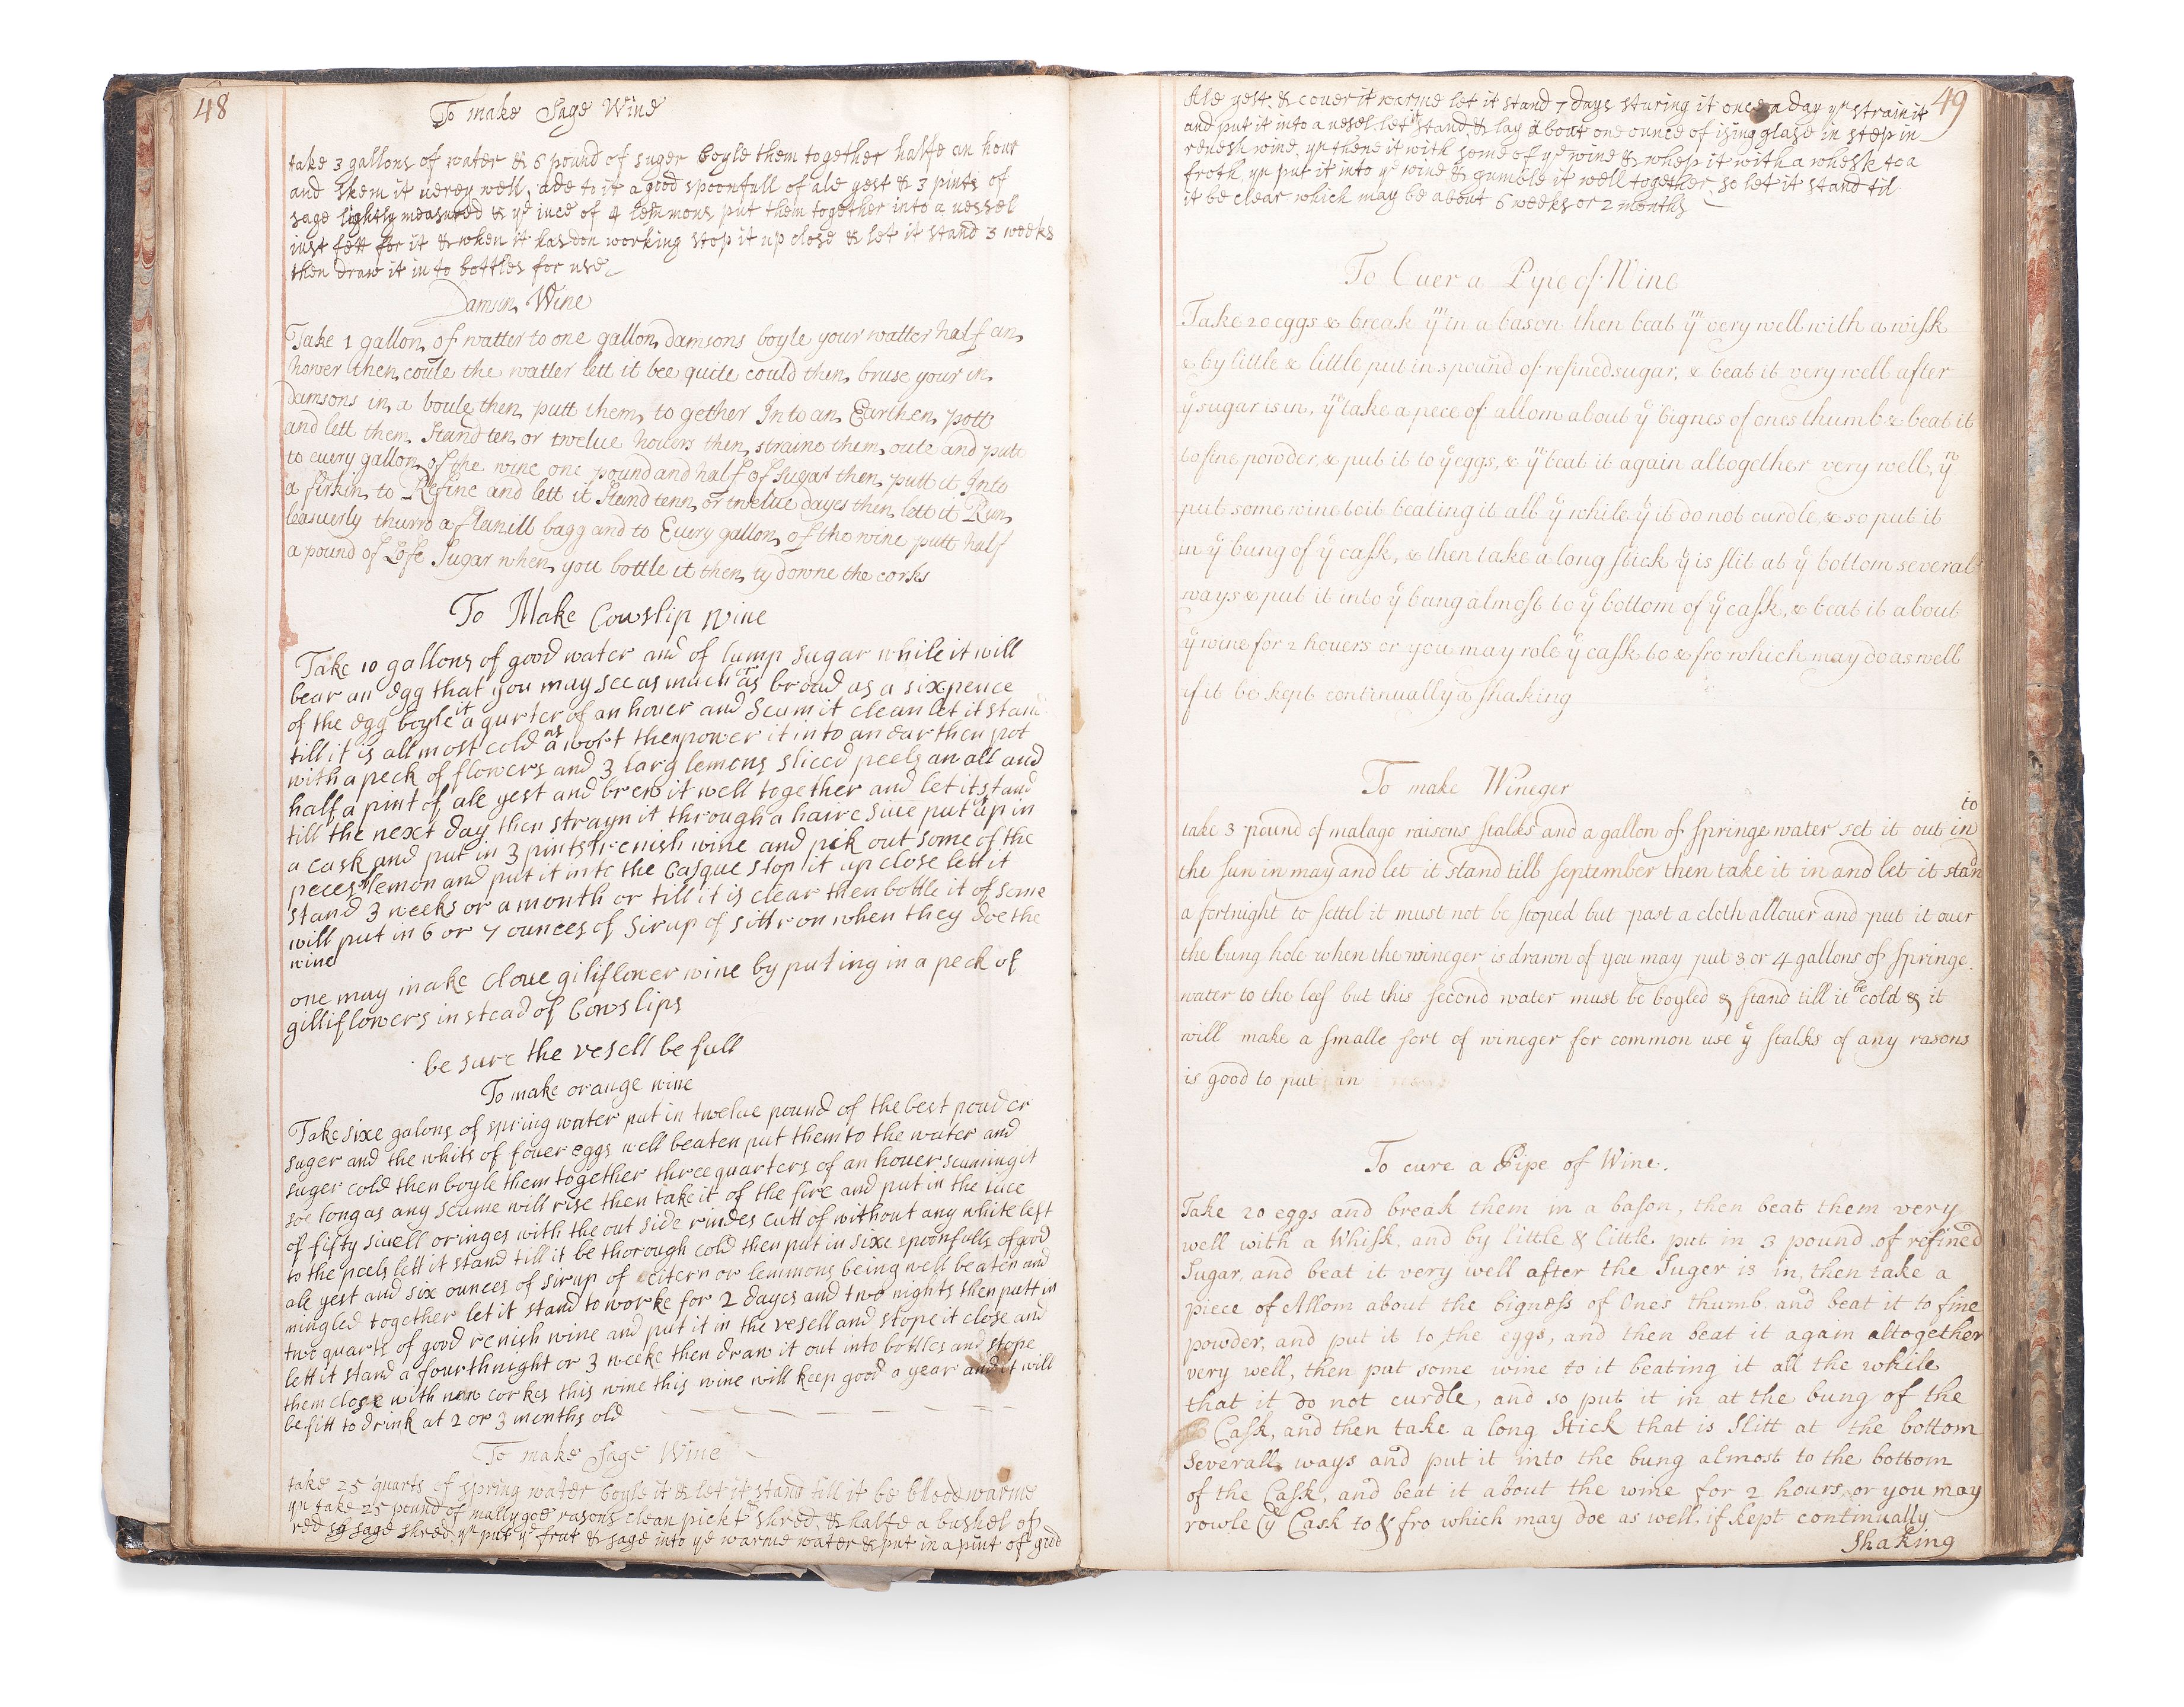 48
To make Sage Wine
take 3 gallons of water & 6 pound of suger boyle them together halfe an hour
and skem it uerey well, ade to it a good spoonfull of ale yest & 3 pints of
sage lightly measured & ye iuce of 4 lemmons put them together into a uessel
iust fett for it & when it has don working stop it up close & let it stand 3 weeks
then draw it in to bottles for use
Damsin Wine
Take 1 gallon of watter to one gallon damsons boyle your watter half an
hower then coule the watter lett it bee quite could then bruse your in
damsons in a boule then putt them to gether Into an Earthen pott
and lett them Stand ten or twelue howers then straine them oute and put
to euery gallon of the wine one pound and half of Sugar then putt it Into
a firkin to Refine and lett it Stand tenn or twelue dayes then lett it Run
leasuerly thurro a flanill bagg and to Euery gallon of the wine putt half
a pound of Lofe Sugar when you bottle it then ty downe the corks
To Make Cowslip wine
Take 10 gallons of good water and of lump sugar while it will
bear an egg that you may see as much or as broad as a sixpence
of the egg boyle it a qurter of an houer and Scum it clean let it stand
till it is all most cold as wort then power it in to an earthen pot
with a peck of flowers and 3 larg lemens sliced peels an all and
half a pint of ale yest and brew it well together and let it stand
till the next day then strayn it through a haire sive put it up in
a cask and put in 3 pints renish wine and pick out some of the
peces of lemon and put it into the Casque stop it up close lett it
stand 3 weeks or a month or till it is clear then bottle it of some
will put in 6 or 7 ounces of Sirup of sittron when they doe the
wine
one may make Cloue giliflower wine by puting in a peck of
gilliflowers in stead of Cowslips
be sure the vesell be full
To make orange wine
Take sixe galons of spring water put in twelue pound of the best pouder
suger and the whits of fouer eggs well beaten put them to the water and
suger cold then boyle them together three quarters of an houer scuming it
soe long as any scume will rise then take it of the fire and put in the iuce
of fifty siuell oringes with the out side rindes cutt of without any white left
to the peels lett it stand till it be thorough cold then put in sixe spoonfulls of good
ale yest and six ounces of sirup of citern or lemmons being well beaten and
mingled together let it stand to worke for 2 dayes and two nights then putt in
two quarts of good renish wine and put it in the vesell and stope it close and
lett it stand a fourthnight or 3 weeke then draw it out into bottles and stope
them close with new corkes this wine this wine will keep good a year and it will
be fitt to drink at 2 or 3 months old
To make Sage Wine
take 25 quarts of spring water boyle it & let it stand till it be bloodwarme
yn take 25 pound of mallygoe rasons clean pickt & shred, & halfe a bushel of
red sage shred yn put ye frut & sage into ye warme water & put in a pint of gud
49
Ale yest, & couer it warme let it stand 7 days sturing it once a day yn strain it
and put it into a vesel. let it stand, & lay about one ounce of ising glase in step in
renesh wine, yn thene it with some of ye wine & whep it with a whesk to a
froth, yn put it into ye wine & gumble it well together, so let it stand til
it be clear which may be about 6 weeks or 2 months
To Cuer a Pype of Wine
Take 20 eggs & break ym in a bason then beat ym very well with a wisk
& by little & little put in 3 pound of refined sugar, & beat it very well after
ye sugar is in, yn take a pece of allom about ye bignes of ones thumb & beat it
to fine powder, & put it to ye eggs, & yn beat it again altogether very well, yn
put some wine to it beating it all ye while yt it do not curdle, & so put it
in ye bung of ye cask, & then take a long stick yt is slit at ye bottom several
ways & put it into ye bung almost to ye bottom of ye cask, & beat it about
ye wine for 2 houers or you may role ye cask to & fro which may do as well
if it be kept continually a shaking
To make Wineger
take 3 pound of malago raisons stalks and a gallon of springe water set it out in to
the sun in may and let it stand till september then take it in and let it stand
a fortnight to settel it must not be stoped but past a cloth allouer and put it ouer
the bung hole when the wineger is drawn of you may put 3 or 4 gallons of springe
water to the lees but this second water must be boyled & stand till it be cold & it
will make a smalle sort of wineger for common use ye stalks of any rasons
is good to put in
To cure a Pipe of Wine.
Take 20 eggs and break them in a bason, then beat them very
well with a Whisk, and by little & little put in 3 pound of refined
Sugar, and beat it very well after the Suger is in, then take a
piece of Allom about the bigness of Ones thumb, and beat it to fine
powder, and put it to the eggs, and then beat it again altogether
very well, then put some wine to it beating it all the while
that it do not curdle, and so put it in at the bung of the
Cask, and then take a long Stick that is Slitt at the bottom
Severall ways and put it into the bung almost to the bottom
of the Cask, and beat it about the wine for 2 hours, or you may
rowle ye Cask to & fro which may doe as well, if kept continually
Shaking